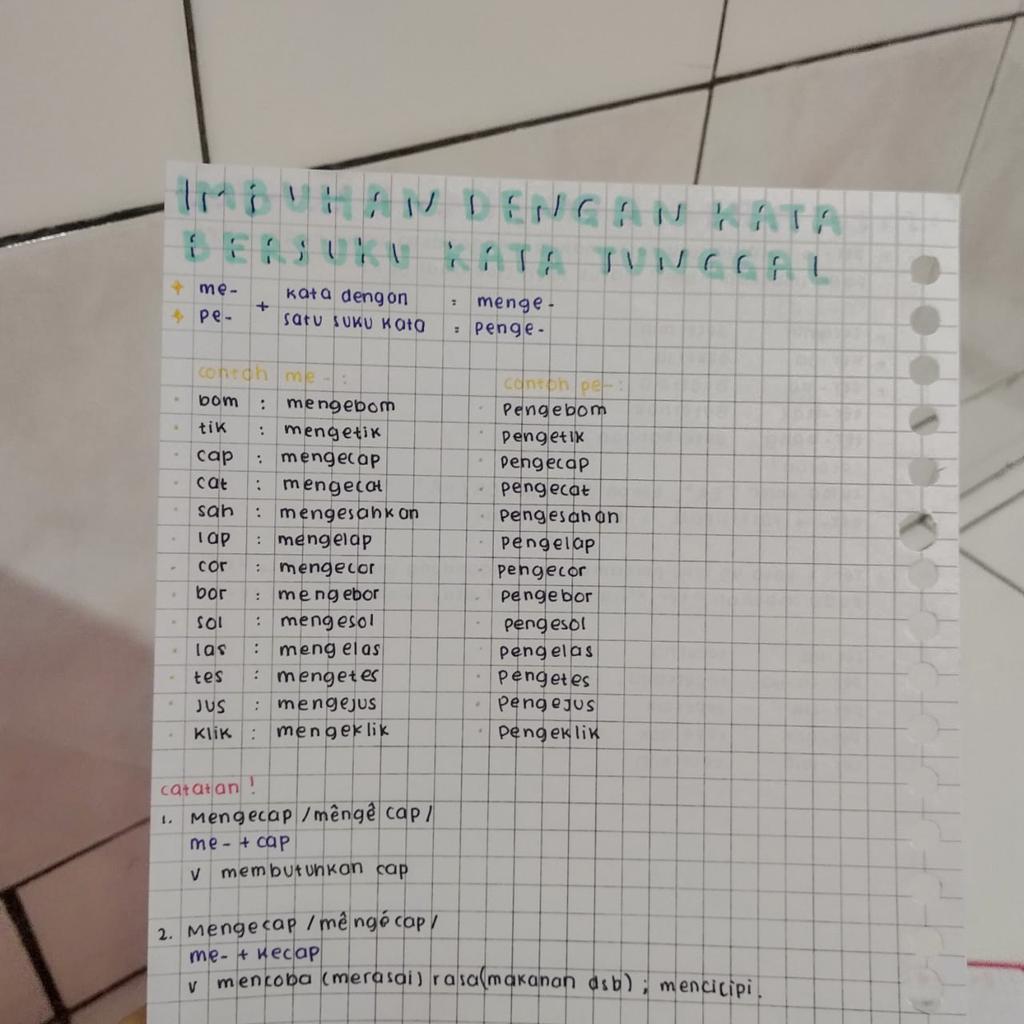 IMBUHAN DENGAN KATA
BERSUKU KATA TUNGGAL
me- + kata dengan : menge-
pe- satu suku kata : penge-
contoh me- : contoh pe- :
bom : mengebom · pengebom
tik : mengetik · pengetik
cap : mengecap · pengecap
cat : mengecat · pengecat
sah : mengesahkan · pengesahan
lap : mengelap · pengelap
cor : mengecor · pengecor
bor : mengebor · pengebor
sol : mengesol · pengesol
las : mengelas · pengelas
tes : mengetes · pengetes
jus : mengejus · pengejus
klik : mengeklik · pengeklik
catatan !
1. Mengecap /mêngê cap/
me- + cap
v membutuhkan cap
2. Mengecap /mêngécap/
me- + kecap
v mencoba (merasai) rasa (makanan dsb) ; mencicipi.